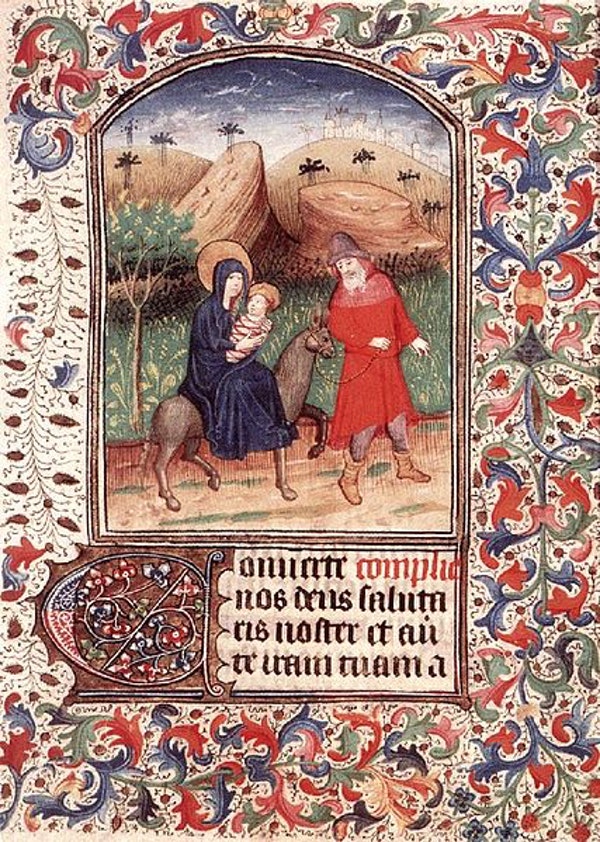 Converte complie
nos deus saluta
ris noster et aū
te iram tuam a